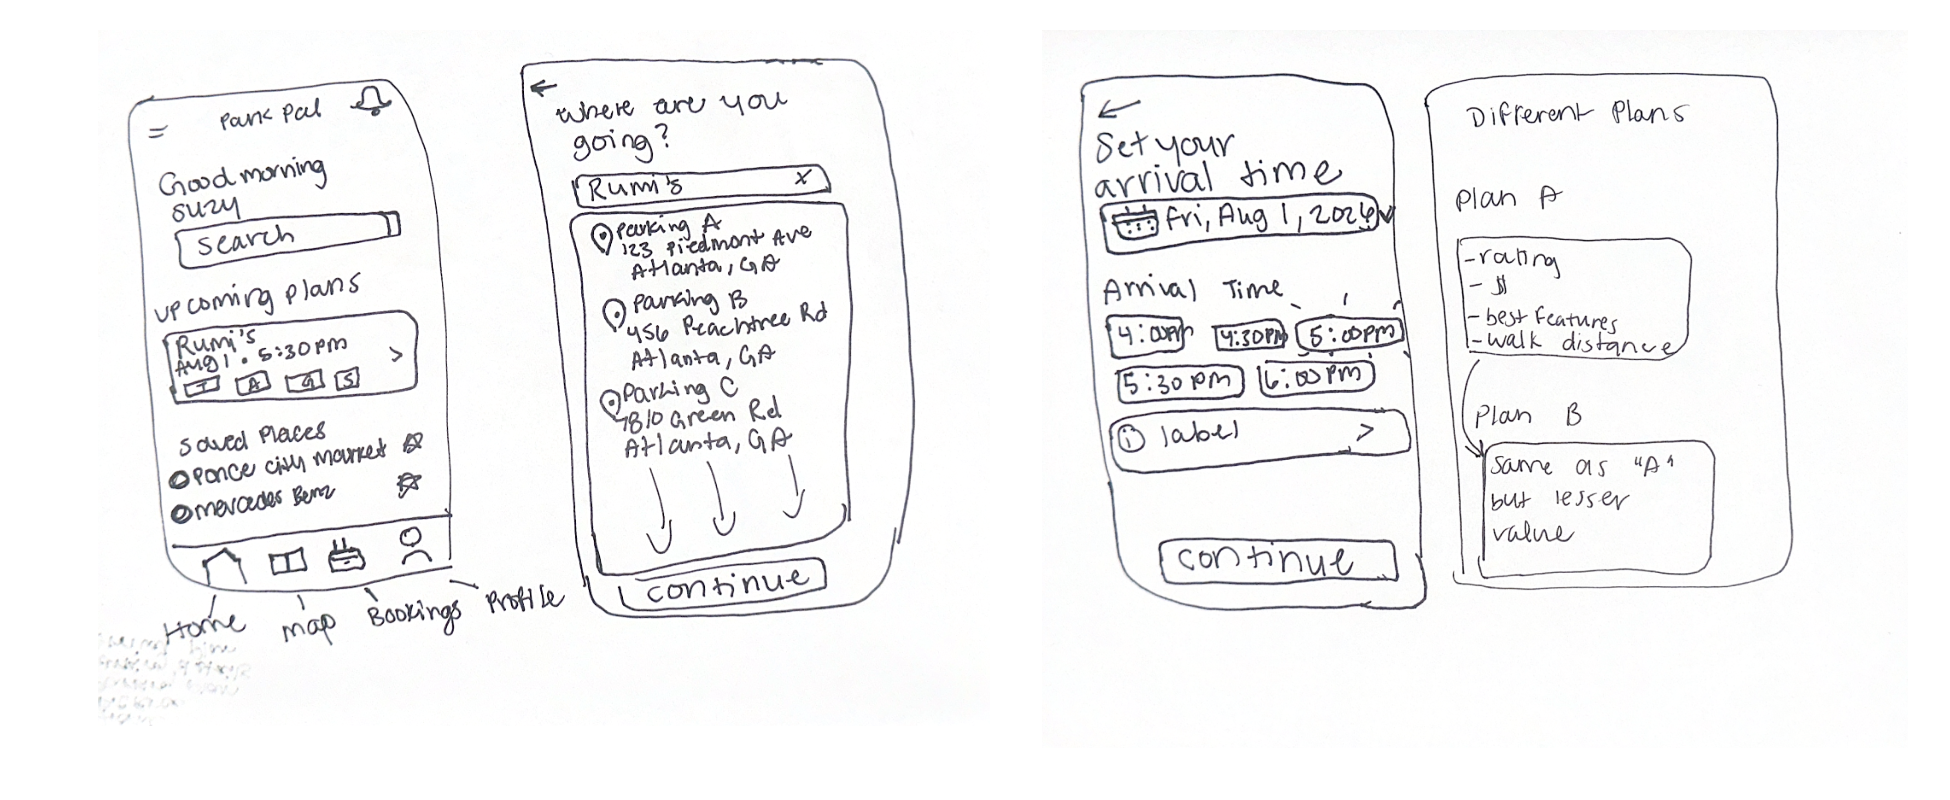 Park Pal
Good morning
suzy
search
upcoming plans
Rumi's
Aug 1 • 5:30pm
T A G S
saved places
Ponce city market
mercedes Benz
Home
map
Bookings
Profile
where are you
going?
Rumi's x
parking A
123 Piedmont Ave
Atlanta, GA
parking B
456 Peachtree Rd
Atlanta, GA
Parking C
7810 Green Rd
Atlanta, GA
continue
Set your
arrival time
Fri, Aug 1, 2026
Arrival Time
4:00PM 4:30PM 5:00pm
5:30 pm 6:00 pm
i label >
continue
Different Plans
Plan A
- rating
- $
- best features
- walk distance
Plan B
same as "A"
but lesser
value